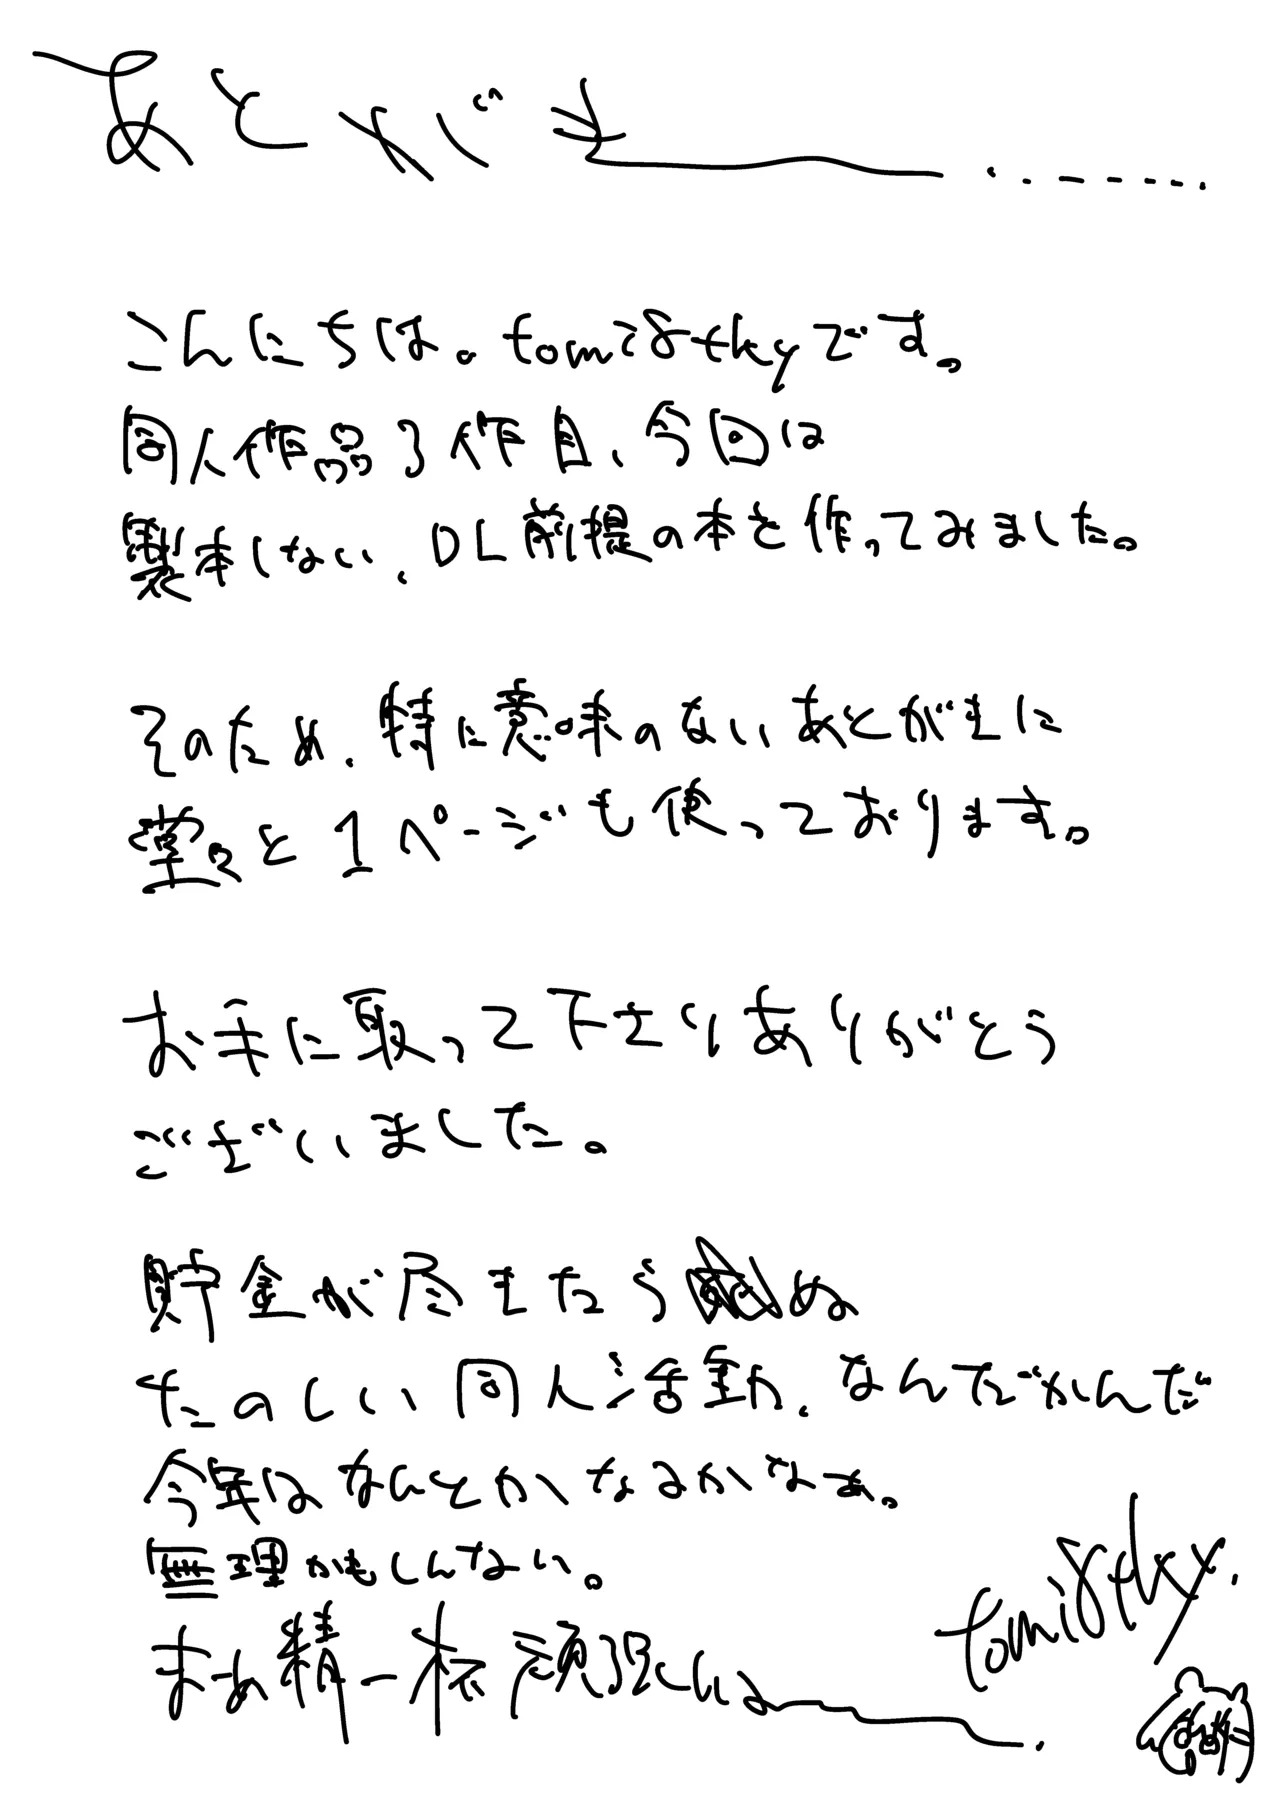 あとがき
こんにちは。tomi8tkyです。
同人作品3作目、今回は
製本しない、DL前提の本を作ってみました。
そのため、特に意味のないあとがきに
堂々と1ページも使っております。
お手に取って下さりありがとう
ございました。
貯金が尽きたら ぬ
たのしい同人活動、なんだかんだ
今年はなんとかなるかなぁ。
無理かもしんない。
まぁ精一杯頑張
tomi8tky.